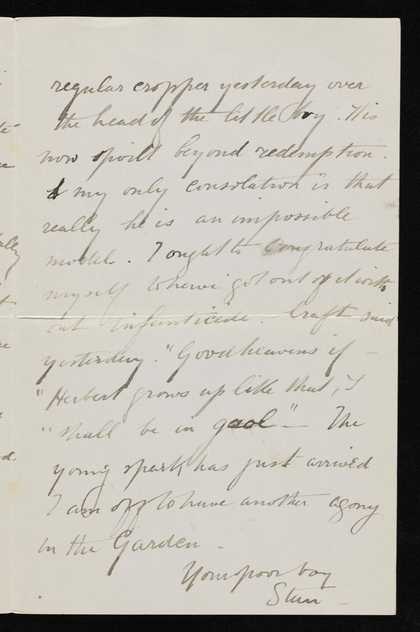 regular cropper yesterday over
the head of the little boy. His
now spoilt beyond redemption.
& my only consolation is that
really he is an impossible
model. I ought to congratulate
myself to have got out of it with
out infanticide. Craft said
yesterday. "Good heavens if –
"Herbert grows up like that, I
"shall be in gaol" – The
young spark has just arrived
I am off to have another agony
in the Garden –
Your poor boy